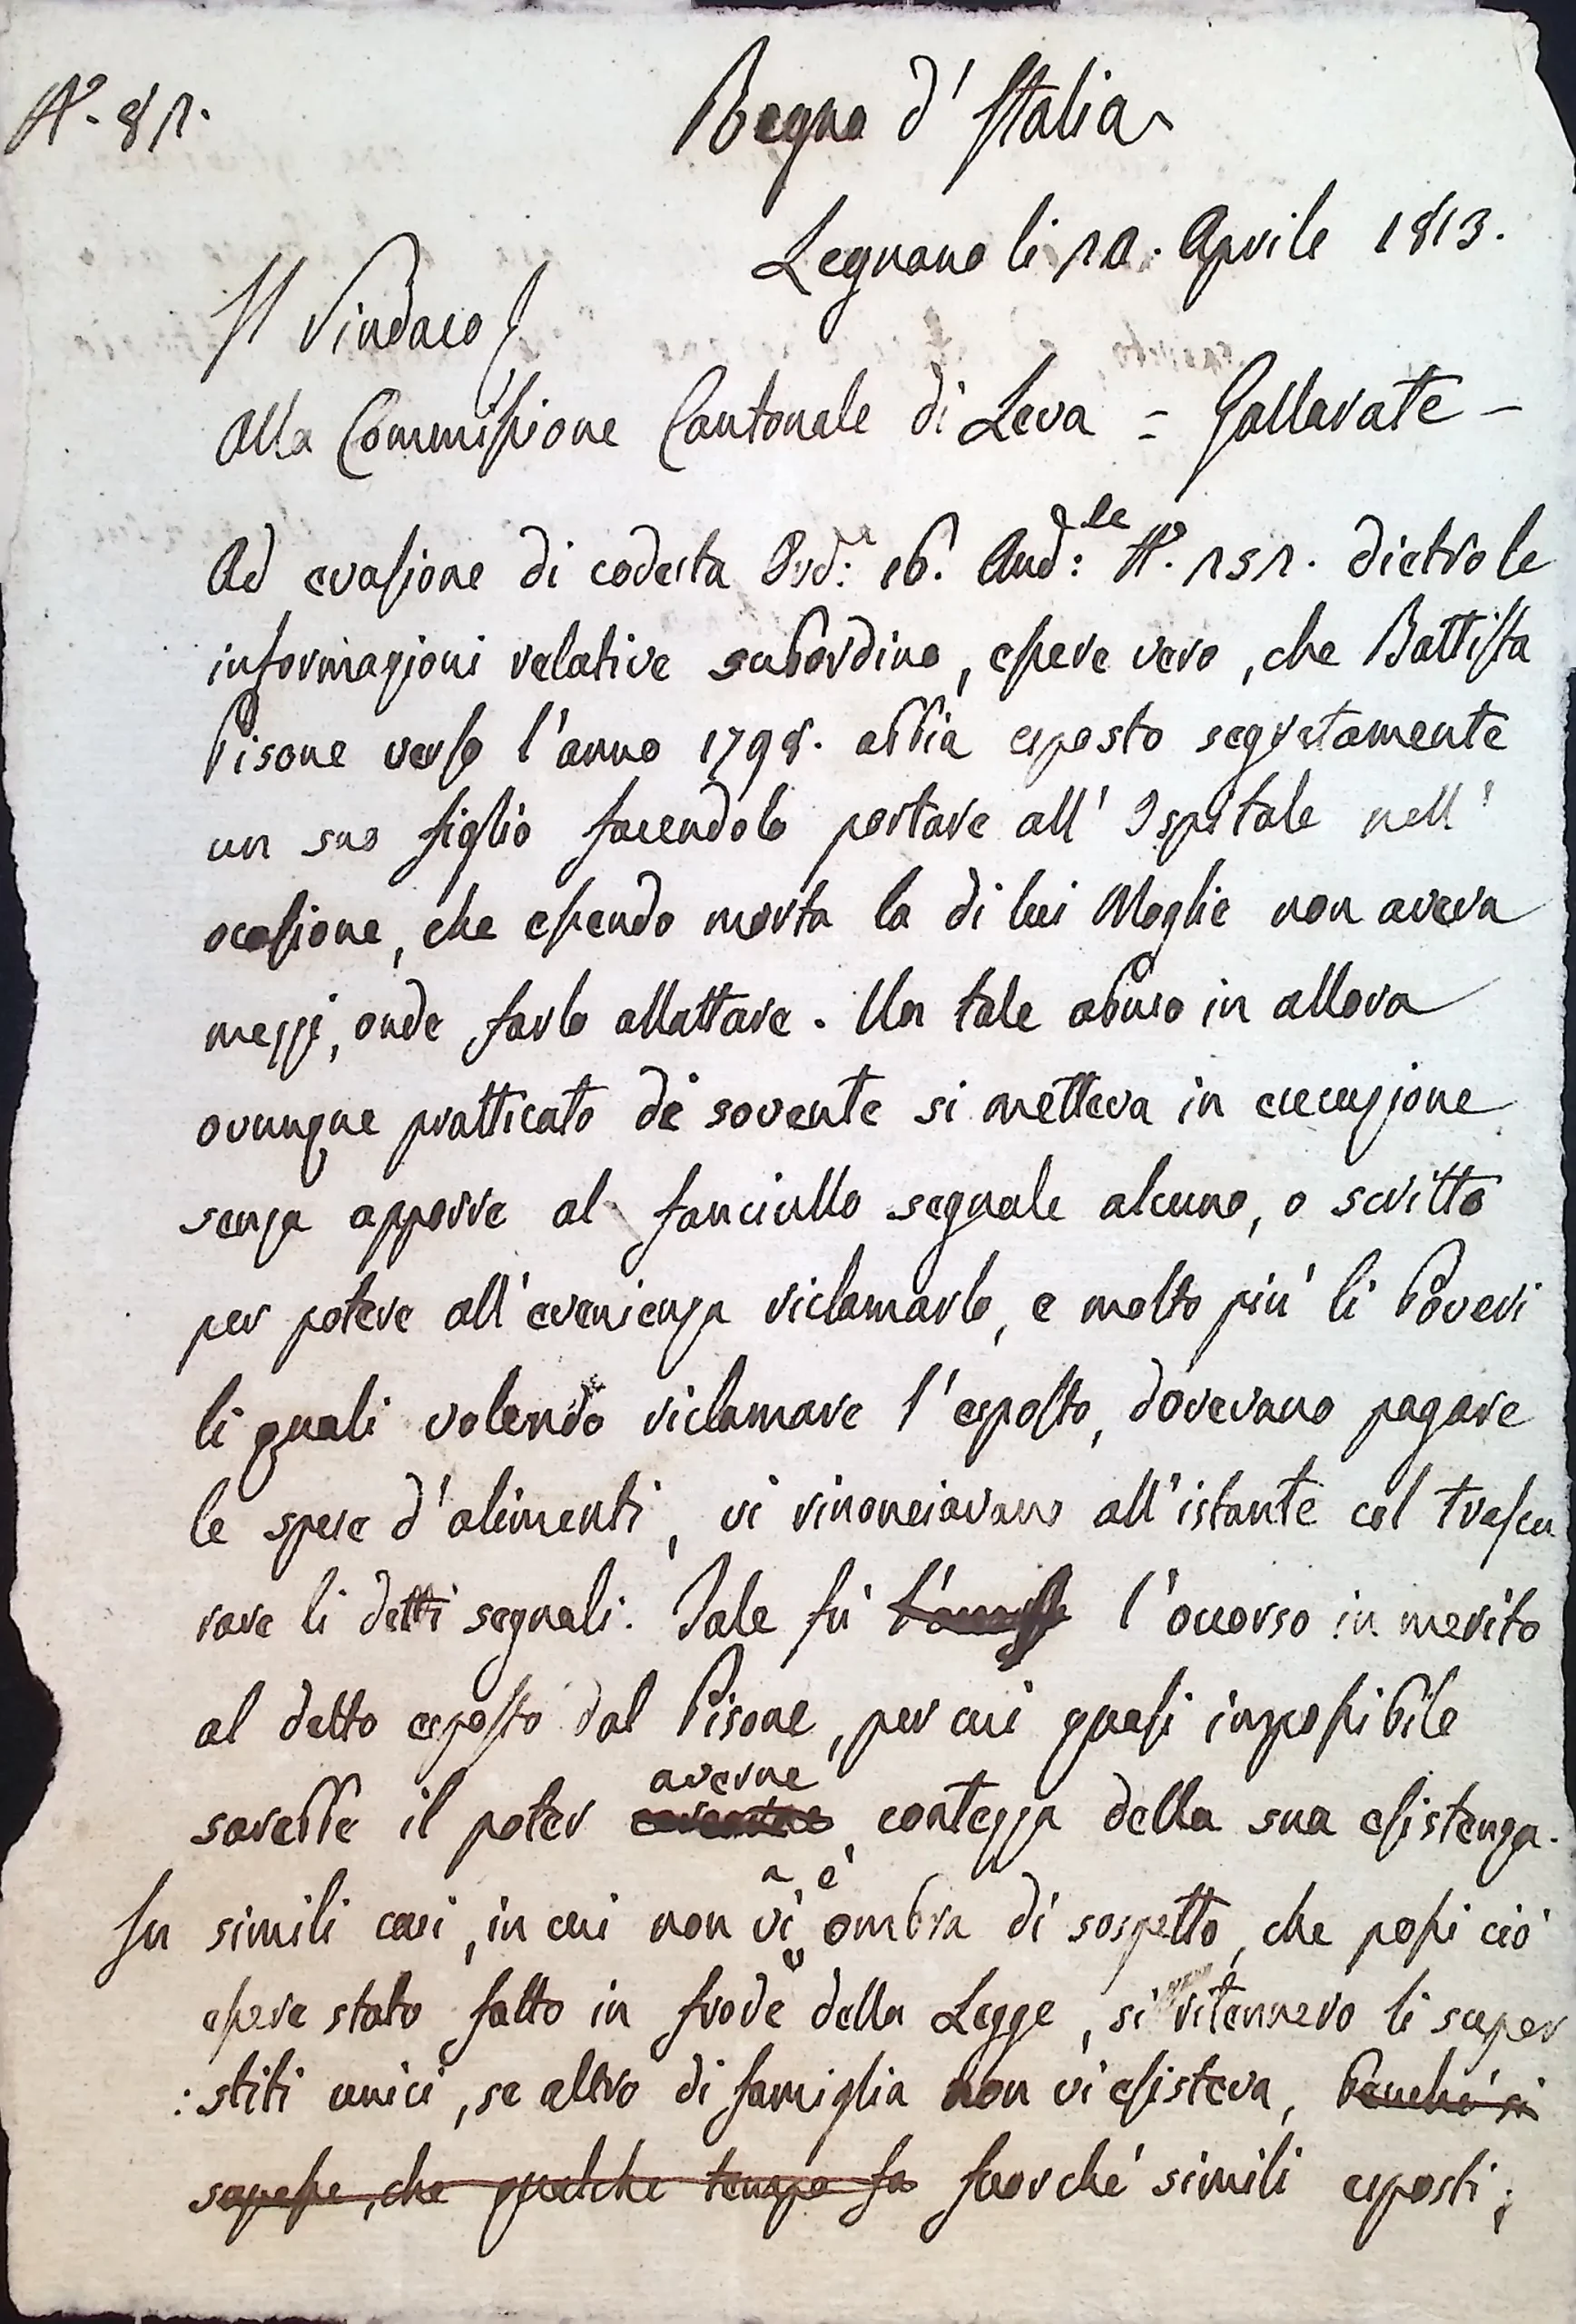 N.° 81. Regno d'Italia
Legnano li 10. Aprile 1813.
Il Sindaco
Alla Commissione Cantonale di Leva = Gallarate -
Ad evasione di codesta Ord.: 16. And:te N.° 151. dietro le
informazioni relative subordino, essere vero, che Battista
Pisone verso l'anno 1798. abbia esposto segretamente
un suo figlio facendolo portare all' Ospitale nell'
ocasione, che essendo morta la di lui Moglie non aveva
mezzi, onde farlo allattare. Un tale abuso in allora
ovunque pratticato di sovente si metteva in esecuzione
senza apporre al fanciullo segnale alcuno, o scritto
per potere all'evenienza riclamarlo, e molto più li Poveri
li quali volendo riclamare l'esposto, dovevano pagare
le spese d'alimenti, vi rinonciavano all'istante col trascu
rare li detti segnali. Tale fù l'occorso in merito
al detto esposto dal Pisone, per cui quasi impossibile
sarebbe il poter averne contezza della sua esistenza.
In simili casi, in cui non vi è ombra di sospetto, che possi ciò
essere stato fatto in frode della Legge, si ritennero li super
:stiti unici, se altro di famiglia non vi esisteva, benché si
sapesse, che qualche tempo fa fuorché simili esposti;